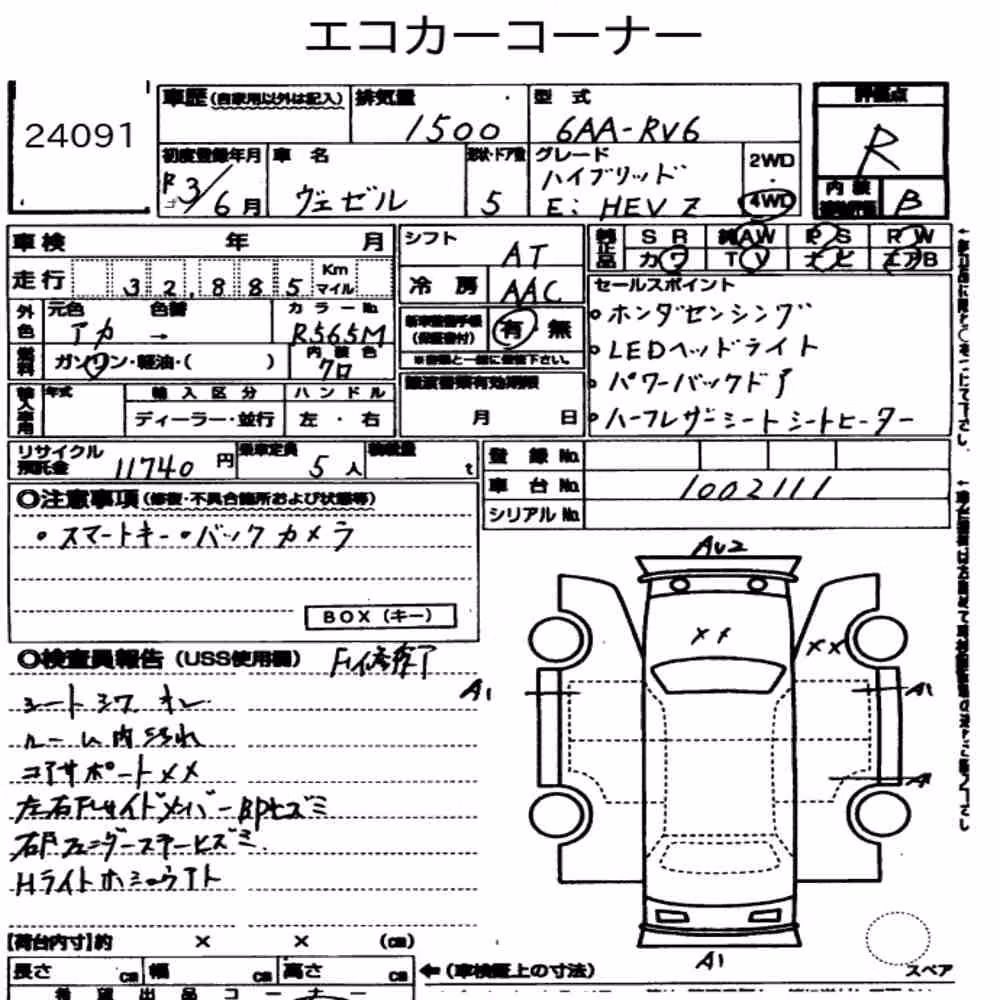 エコカーコーナー
24091
車歴 (自家用以外は記入) 排気量 型式 評価点
1500 6AA-RV6 R
初度登録年月 車名 形状・ドア数 グレード 2WD・4WD
R3/6月 ヴェゼル 5 ハイブリッド
E:HEV Z
内装 B
車検 年 月 シフト AT
純正品 SR 純AW PS RW
カワ TV ナビ エアB
走行 32,885 Km マイル
冷房 AAC
セールスポイント
ホンダセンシング
LEDヘッドライト
パワーバックドア
ハーフレザーシートシートヒーター
外色 元色 色替 カラーNo.
アカ → R565M
新車整備手帳 (保証書付) 有・無
※書類と一緒に送信下さい。
燃料 ガソリン・軽油・( ) 内装色 クロ
譲渡書類有効期限
月 日
輸入車用 年式 輸入区分 ハンドル
ディーラー・並行 左・右
リサイクル預託金 11740円 乗車定員 5人 積載量 t
登録No.
車台No. 1002111
シリアルNo.
◎注意事項 (修復・不具合箇所および状態等)
・スマートキー・バックカメラ
BOX (キー)
◎検査員報告 (USS使用欄)
シートシワ スレ
ルーム内汚れ
コアサポートXX
左右Fサイドメンバー BPヒズミ
右Fフェンダーステーヒズミ
Hライトホショウアト
AU2
XX
XX
A1
A1
A1
A1
【荷台内寸】約 × × (cm)
長さ cm 幅 cm 高さ cm
←(車検証上の寸法)
スペア
希望出品コーナー